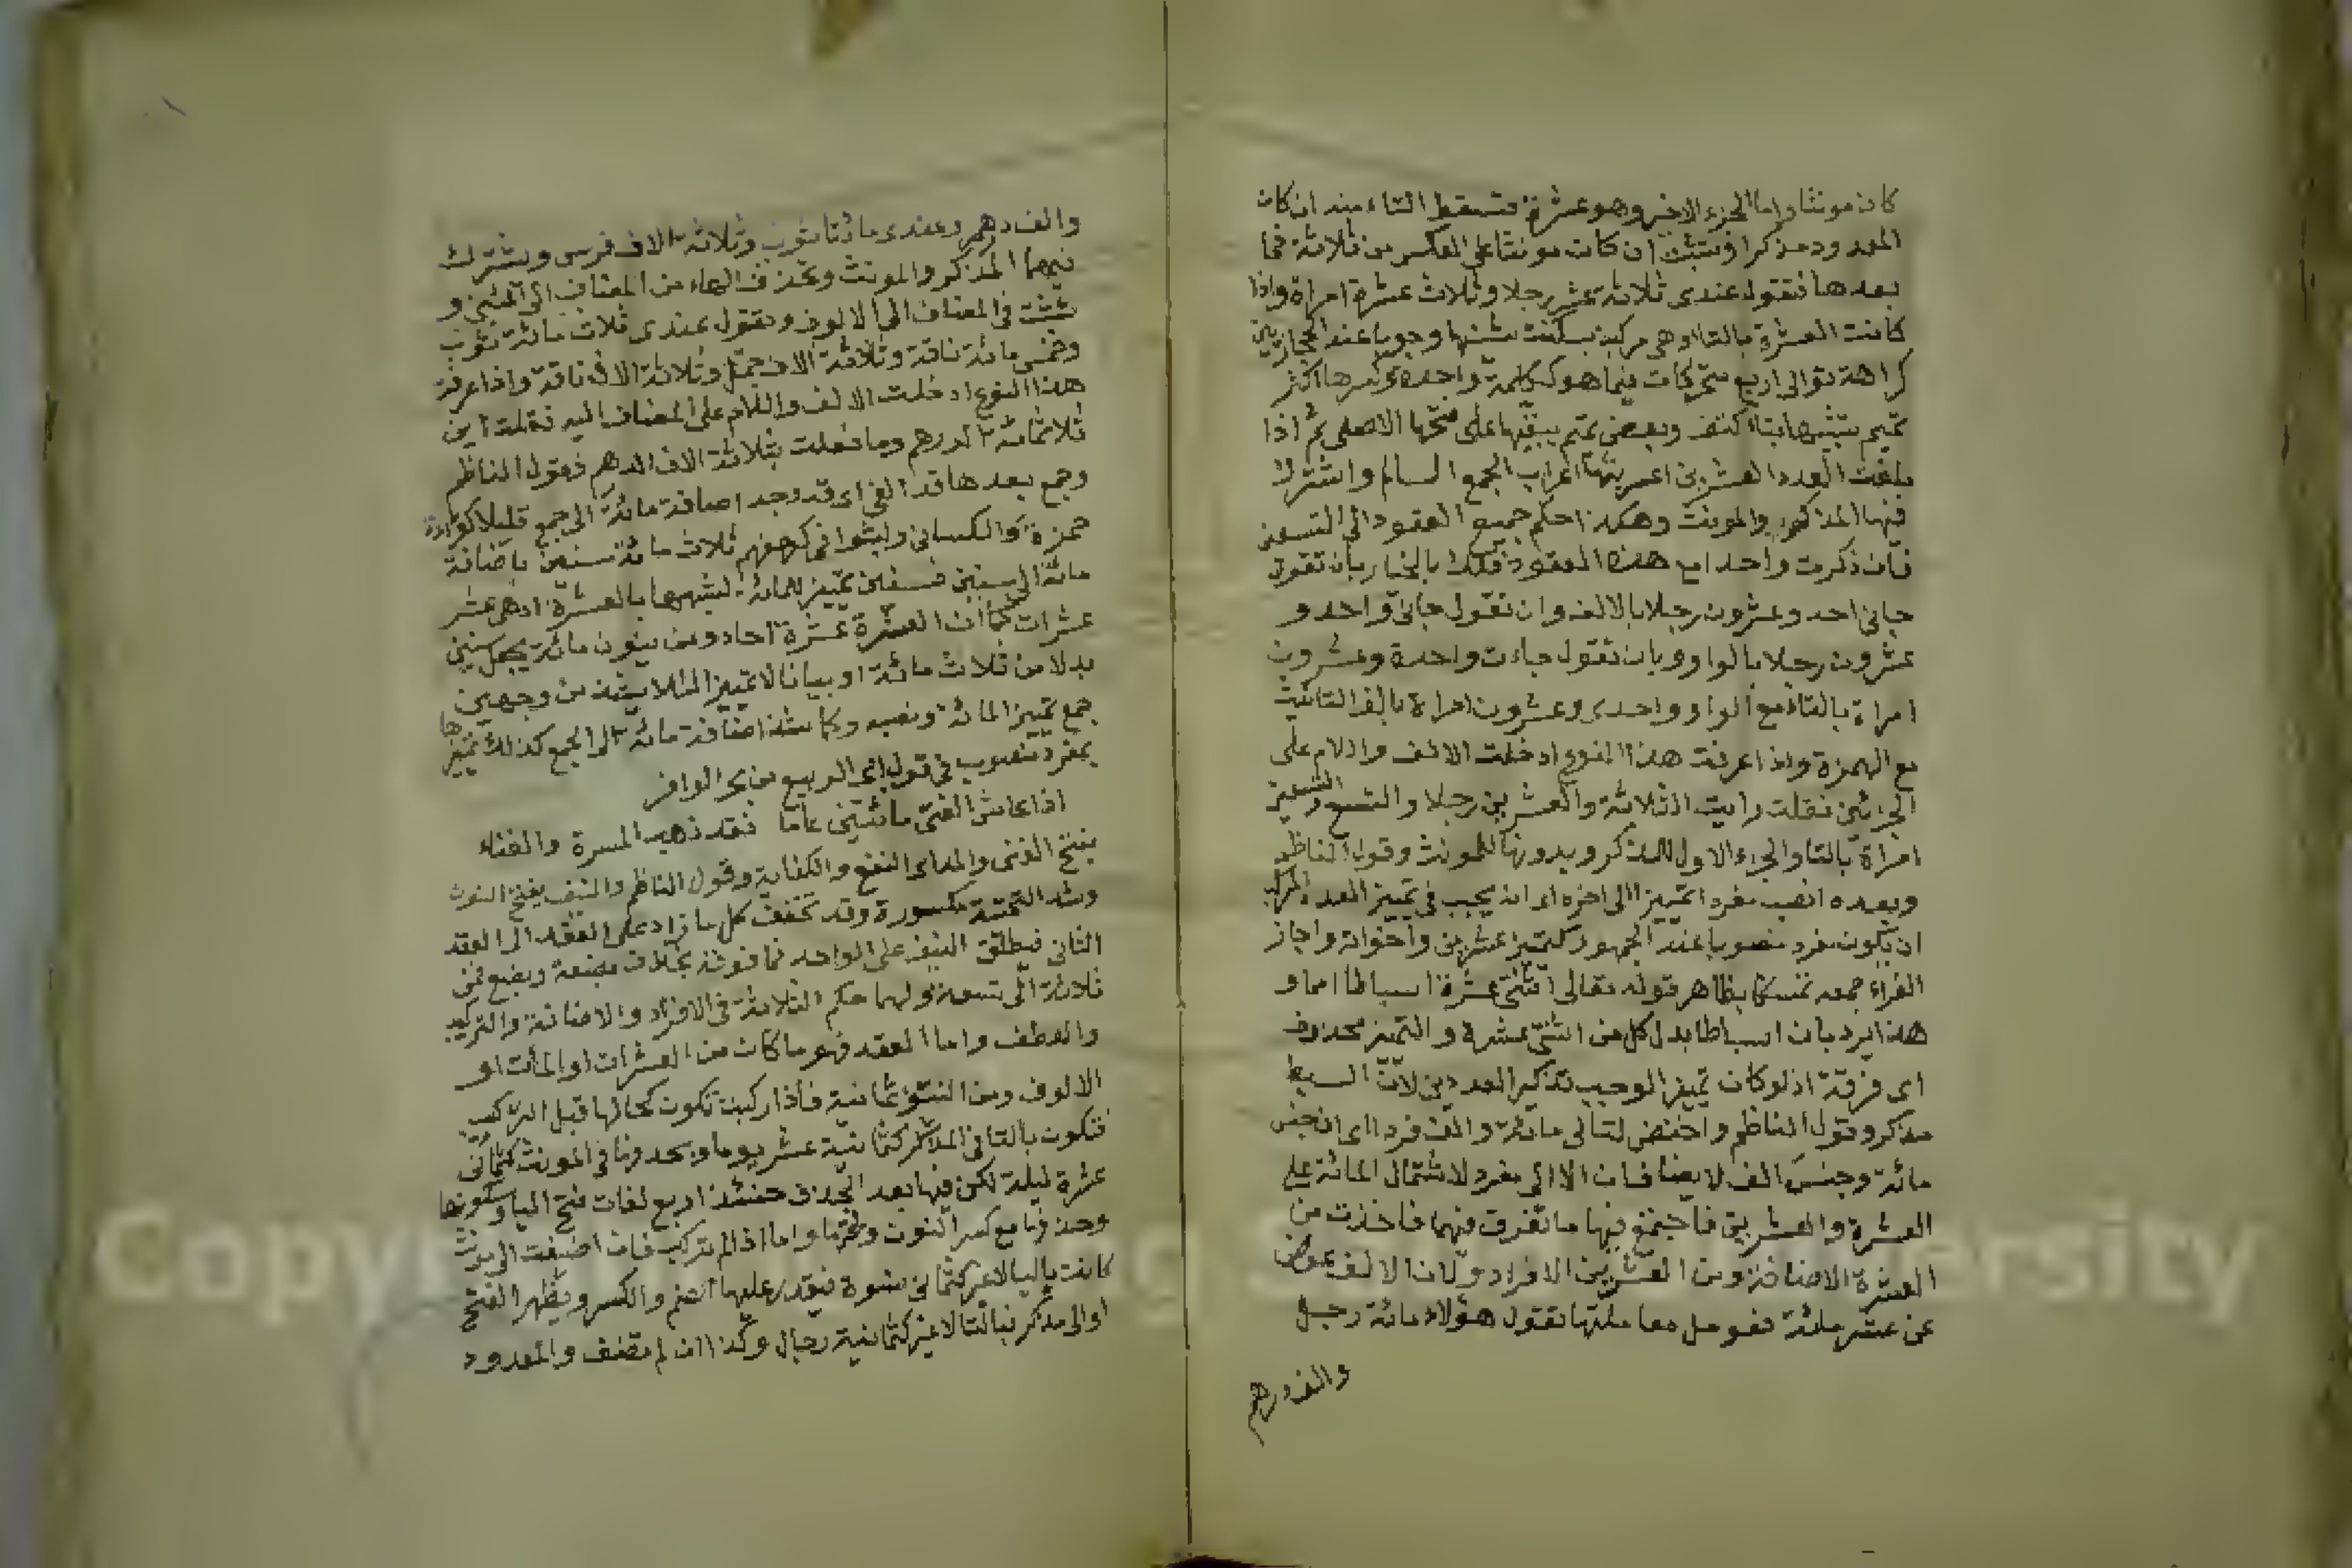 كان مونثا واما الجزء الاخير وهو عشرة فتسقط التاء منه ان كان
المعدود مذكرا وتثبت ان كان مونثا على العكس من ثلاثة فما
بعدها فتقول عندى ثلاثة عشر رجلا وثلاث عشرة امراة واذا
كانت العشرة بالتاء وهى مركبة سكنت شينها وجوبا عند الحجازيين
كراهة توالى اربع متحركات فيما هو ككلمة واحدة وكسرها اكثر
تميم تشبيها بتاء كتف وبعض تميم يبقيها على فتحها الاصلى ثم اذا
بلغت العدد العشرين اعربتها اعراب الجمع السالم واشترك
فيها المذكر والمونث وهكذا حكم جميع العقود الى التسعين
فان ذكرت واحدا مع هذه العقود فلك بالخيار بان تقول
جانى احد وعشرون رجلا بالالف وان تقول جانى واحد و
عشرون رجلا بالواو وبان تقول جاءت واحدة وعشرون
امراة بالتاء مع الواو واحدى وعشرون امراة بالف التانيث
مع الهمزة واذا عرفت هذا النوع ادخلت الالف واللام على
الجزئين فقلت رايت الثلاثة والعشرين رجلا والتسع والتسعين
امراة بالتا والجزء الاول للمذكر وبدونها للمونث وقول الناظم
وبعده انصب مفردا تمييزا الى اخره اى انه يجب فى تمييز العدد المركب
ان يكون مفرد منصوبا عند الجمهور كتمييز عشرين واخواته واجاز
الفراء جمعه تمسكا بظاهر قوله تعالى اثنتى عشرة اسباطا امما و
هذا يرد بان اسباطا بدل كل من اثنتى عشرة والتمييز محذوف
اى فرقة اذ لو كان تمييزا لوجب تذكير العددين لان السبط
مذكر وقول الناظم واخفض لتالى مائة والف فردا اى ان جنس
مائة وجنس الف لا يضافان الا الى مفرد لاشتمال المائة على
العشرة والعشرين فاجتمع فيها ما تفرق فيهما فاخذت من
العشرة الاضافة ومن العشرين الافراد ولان الالف عوض
عن عشر مائة فعومل معاملتها تقول هؤلاء مائة رجل
والف درهم
والف درهم وعندى مائتا ثوب وثلاثة الاف فرس ويشترك
فيهما المذكر والمونث وتحذف الهاء من المضاف الى المئين و
تثبت فى المضاف الى الالوف وتقول عندى ثلاث مائة ثوب
وخمس مائة ناقة وثلاثة الاف جمل وثلاثة الاف ناقة واذا عرفت
هذا النوع ادخلت الالف واللام على المضاف اليه فقلت اين
ثلاثمائة الدرهم وما فعلت بثلاثة الاف الدرهم فقول الناظم
وجمع بعدها قد الفى اى قد وجد اضافة مائة الى جمع قليلا كقراءة
حمزة والكسائى ولبثوا فى كهفهم ثلاث مائة سنين باضافة
مائة الى سنين فسنين تمييز للمائة لشبهها بالعشرة اذ هى عشر
عشرات كما ان العشرة عشرة احاد ومن ينون مائة يجعل سنين
بدلا من ثلاث مائة او بيانا لا تمييزا لئلا يشذ من وجهين
جمع تمييز المائة ونصبه وكما شذ اضافة مائة الى الجمع كذلك تمييزها
بمفرد منصوب فى قول ابى الربيع من بحر الوافر
اذا عاش الفتى مائتين عاما فقد ذهب المسرة والفتاء
بفتح الفى والمد اى النفع والكفاية وقول الناظم والنيف بفتح النون
وشد التحتية مكسورة وقد تخفف كل ما زاد على العقد الى العقد
الثانى فيطلق النيف على الواحد فما فوقه بخلاف بضعة وبضع فمن
ثلاثة الى تسعة ولهما حكم الثلاثة فى الافراد والاضافة والتركيب
والعطف واما العقد فهو ما كان من العشرات او المآت او
الالوف ومن النيف ثمانية فاذا ركبت تكون كحالها قبل التركيب
فتكون بالتا فى المذكر كثمانية عشر يوما وبحذفها فى المونث كثمانى
عشرة ليلة لكن فيها بعد الحذف حينئذ اربع لغات فتح الياء وسكونها
وحذفها مع كسر النون وفتحها واما اذا لم تركب فان اضيفت الى مونث
كانت باليا لا غير كثمانى نسوة فيقدر عليها الضم والكسر ويظهر الفتح
او الى مذكر فبالتا لا غير كثمانية رجال وكذا ان لم تضف والمعدود